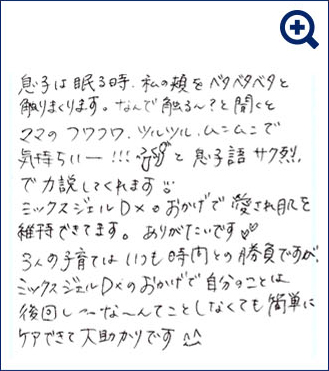 息子は眠る時、私の頬をベタベタベタと
触りまくります。なんで触る〜?と聞くと
ママの フワフワ、ツルツル、ムニムニで
気持ちいー!!! と 息子語 サク烈、
で力説してくれます
ミックスジェルDxのおかげで愛され肌を
維持できてます。ありがたいです♡♡
3人の子育てはいつも時間との勝負ですが、
ミックスジェルDxのおかげで自分のことは
後回し〜な〜んてことしなくても簡単に
ケアできて大助かりです ^^